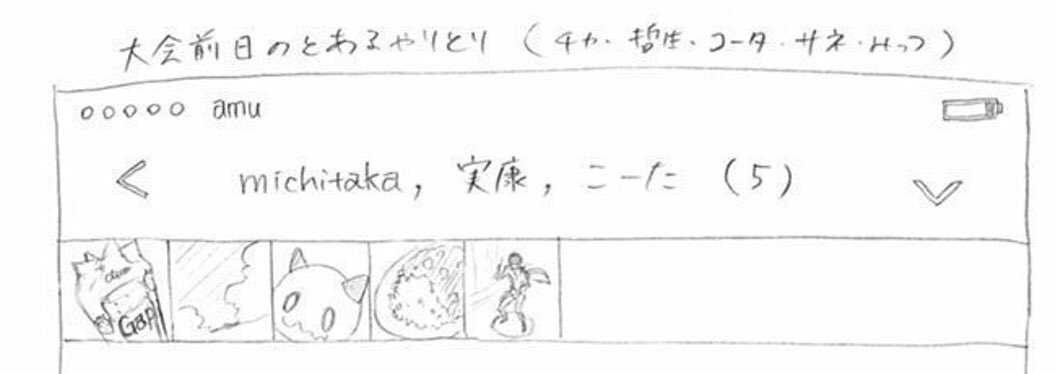 大会前日のとあるやりとり（チカ・哲生・コータ・サネ・みっつ）
ooooo amu
< michitaka, 実康, こーた （5）
Gap